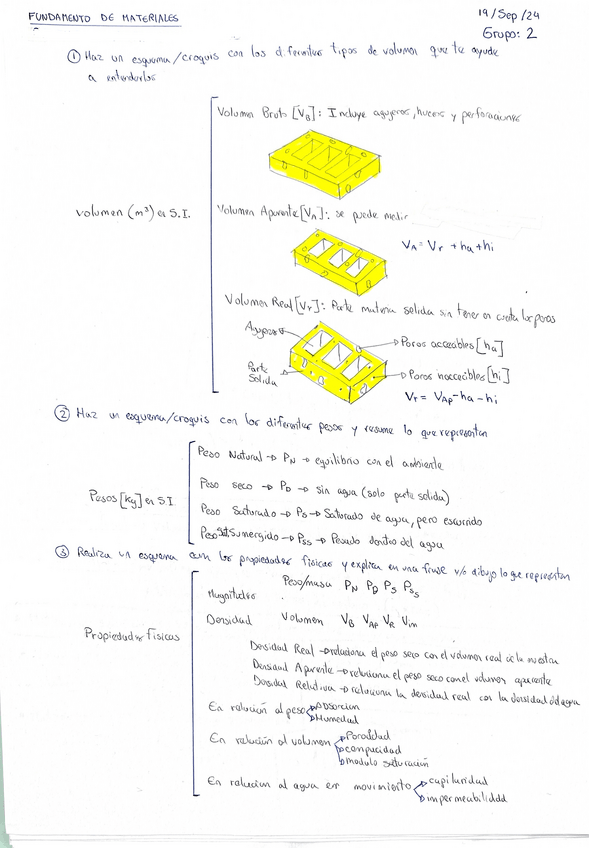 FUNDAMENTO DE MATERIALES
19/Sep/24
Grupo: 2
① Haz un esquema/croquis con los diferentes tipos de volumen que te ayude
a entenderlos
Volumen Bruto [VB]: Incluye agujeros, huecos y perforaciones
volumen (m³) en S.I.
Volumen Aparente [VA]: se puede medir
VA = Vr + ha + hi
Volumen Real [Vr]: Parte materia solida sin tener en cuenta los poros
Agujeros
Poros accesibles [ha]
Parte
Solida
Poros inaccecibles [hi]
Vr = VAp - ha - hi
② Haz un esquema/croquis con los diferentes pesos y resume lo que representan
Peso Natural → PN → equilibrio con el ambiente
Peso seco → PD → sin agua (solo parte solida)
Pesos [kg] en S.I
Peso Saturado → Ps → Saturado de agua, pero escurrido
Peso Sat Sumergido → Pss → Pesado dentro del agua
③ Realiza un esquema con las propiedades fisicas y explica en una frase y/o dibujo lo que representan
Peso/masa PN PD PS PSS
Magnitudes
Densidad Volumen VB VAp VR Vin
Propiedades Fisicas
Densidad Real → relaciona el peso seco con el volumen real de la muestra
Densidad Aparente → relaciona el peso seco con el volumen aparente
Densidad Relativa → relaciona la densidad real con la densidad del agua
En relación al peso → Absorcion
→ Humedad
En relación al volumen → Porosidad
→ compacidad
→ modulo saturación
En relacion al agua en movimiento → capilaridad
→ impermeabilidad